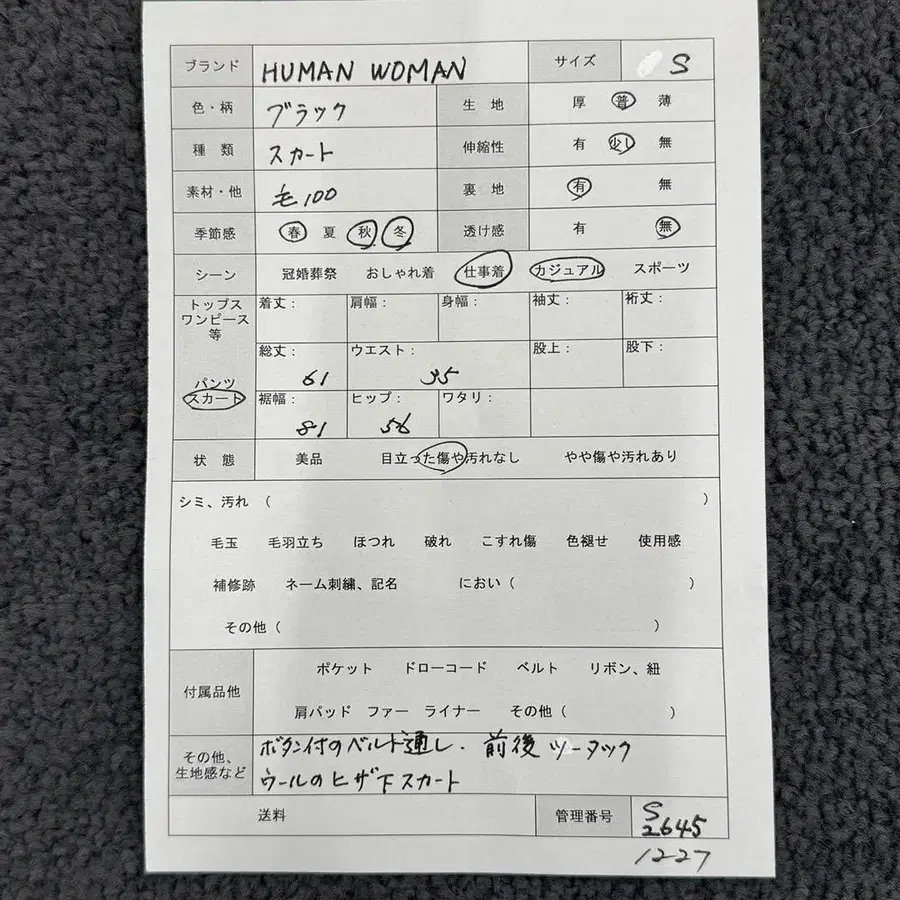 ブランド HUMAN WOMAN サイズ S
色・柄 ブラック 生 地 厚 普 薄
種 類 スカート 伸縮性 有 少し 無
素材・他 毛100 裏 地 有 無
季節感 春 夏 秋 冬 透け感 有 無
シーン 冠婚葬祭 おしゃれ着 仕事着 カジュアル スポーツ
トップス 着丈： 肩幅： 身幅： 袖丈： 裄丈：
ワンピース
等
総丈： ウエスト： 股上： 股下：
パンツ 61 35
スカート 裾幅： ヒップ： ワタリ：
81 56
状 態 美品 目立った傷や汚れなし やや傷や汚れあり
シミ、汚れ （ ）
毛玉 毛羽立ち ほつれ 破れ こすれ傷 色褪せ 使用感
補修跡 ネーム刺繍、記名 におい（ ）
その他（ ）
ポケット ドローコード ベルト リボン、紐
付属品他
肩パッド ファー ライナー その他（ ）
その他、 ボタン付のベルト通し. 前後ツータック
生地感など ウールのヒザ下スカート
送料 管理番号 S
2645
12-27